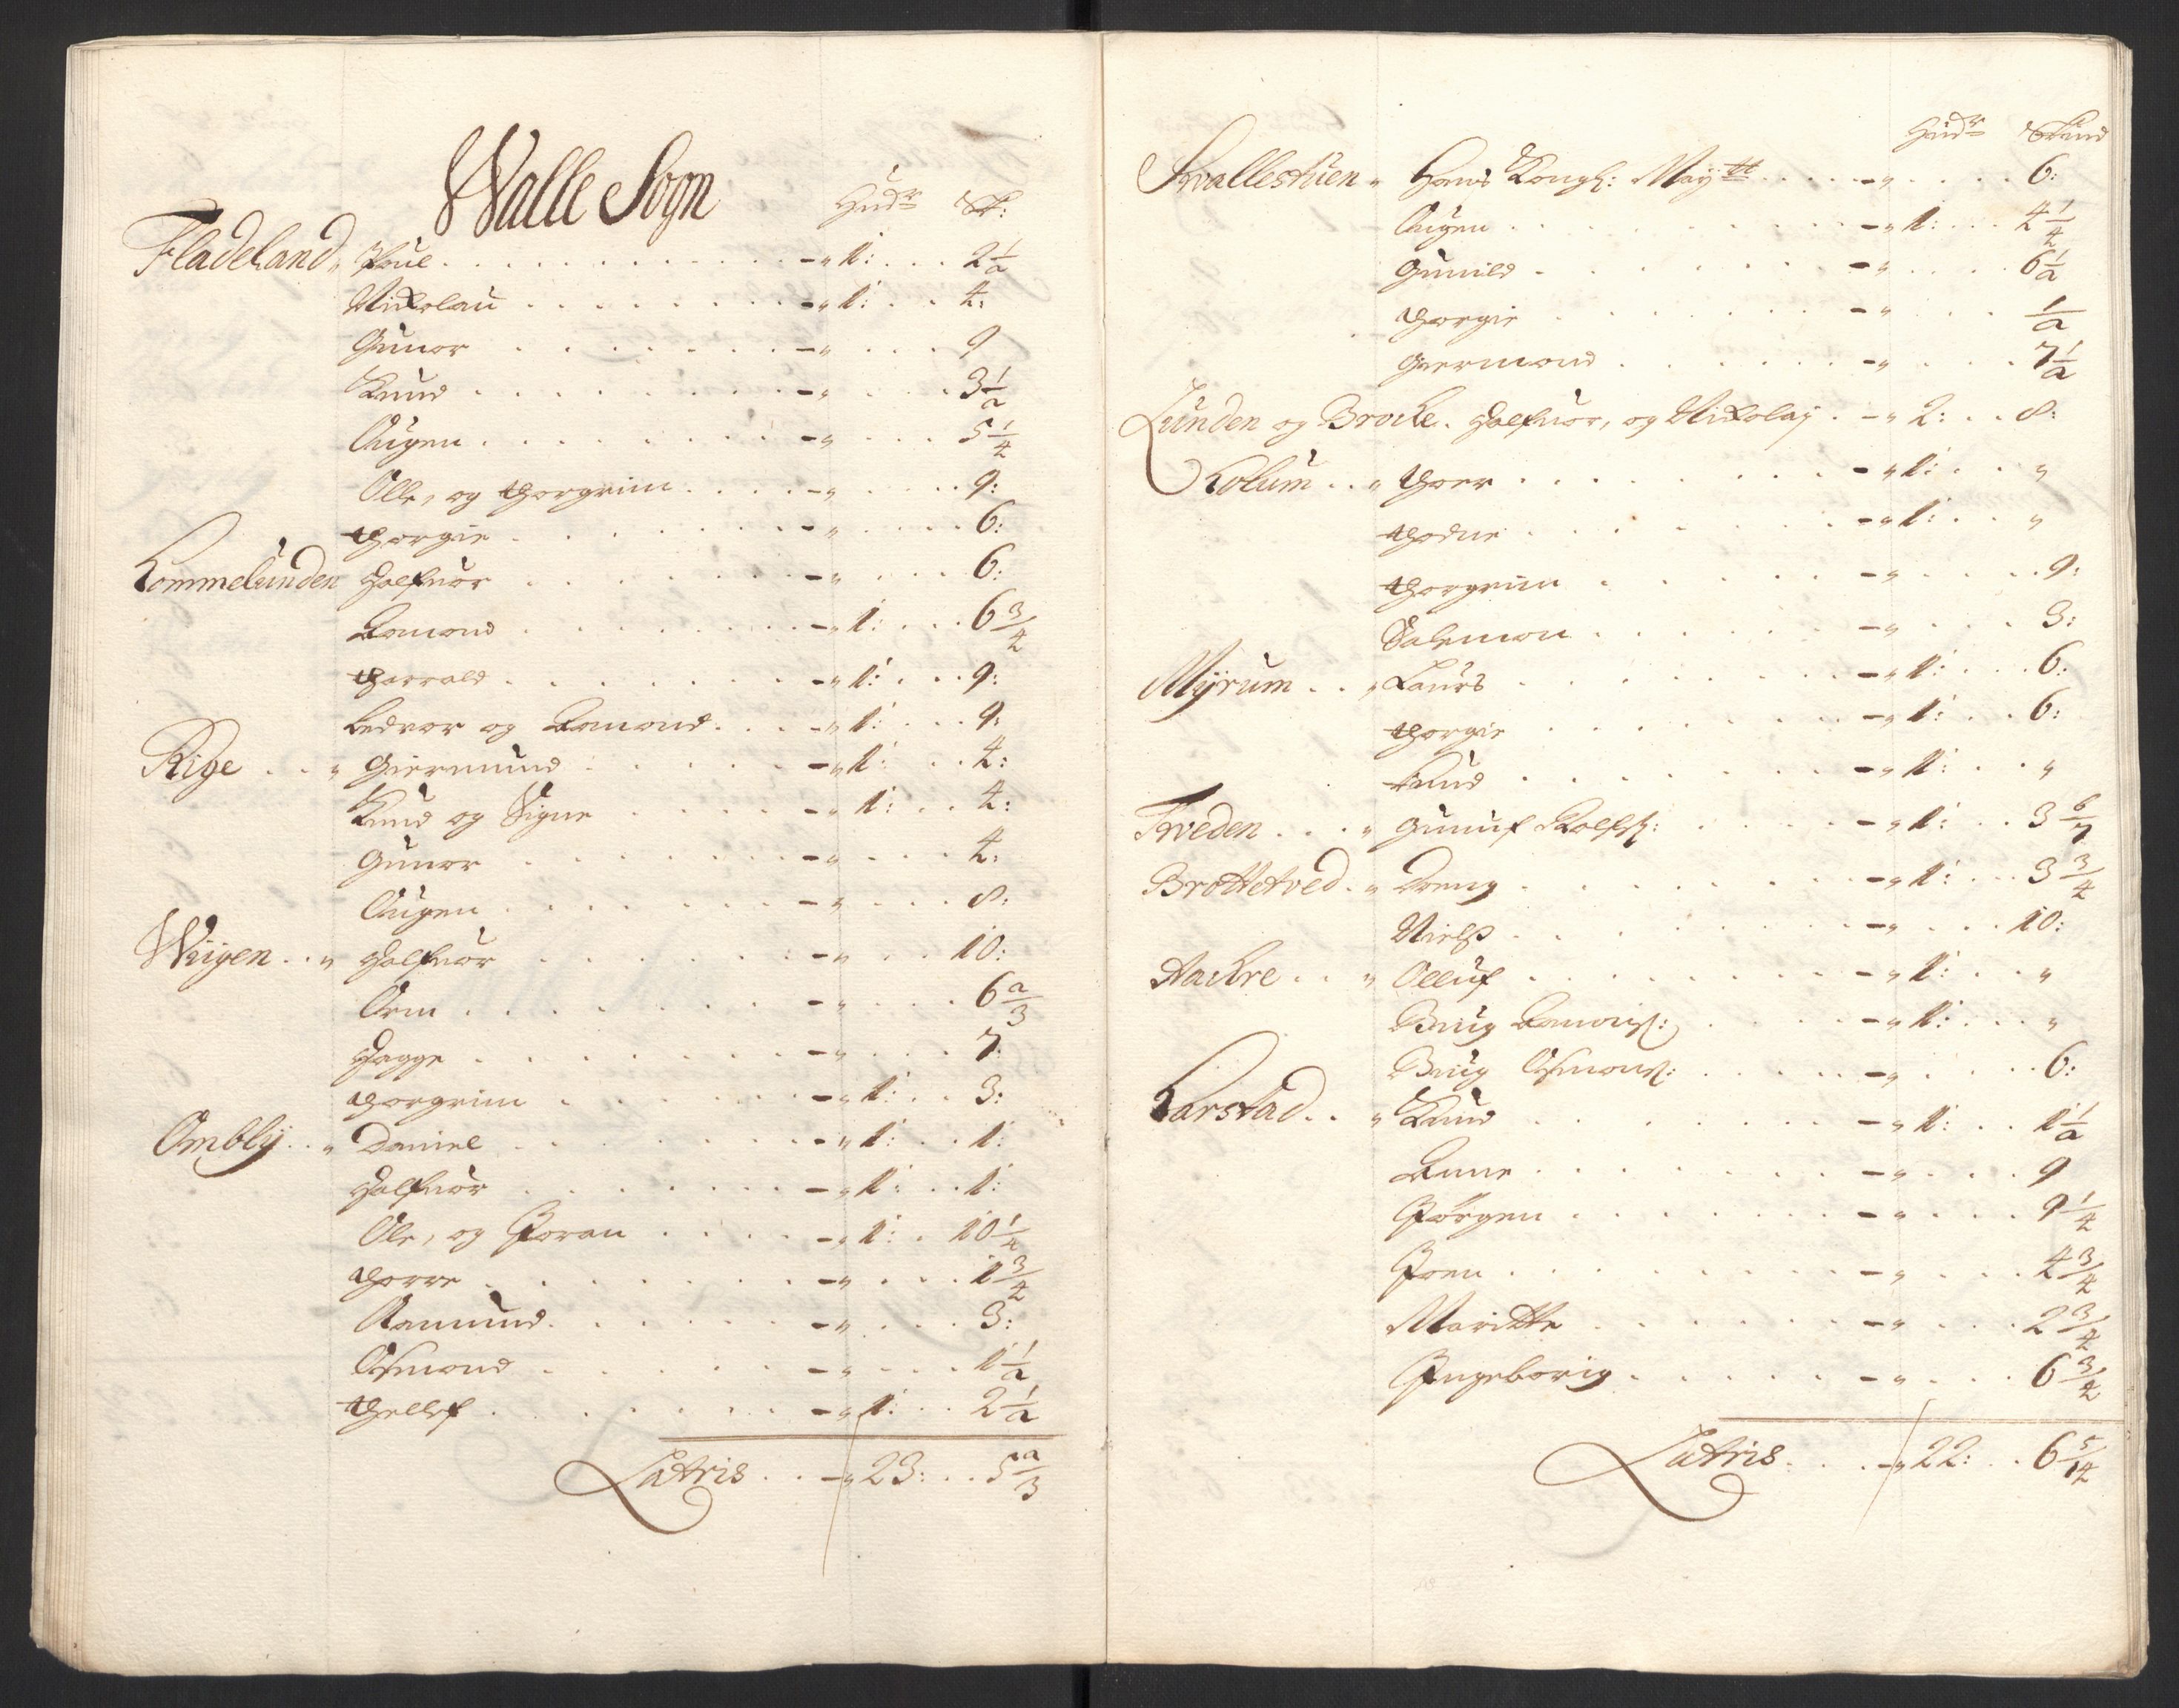 Walle Sogn
Hudr Sk:
Fladeland „ Poul . . . - „ 1: . . . 2 1/2
Nickolau . . . - „ 1: . . 4:
Gunor . . . - „ . . . 9
Knud . . . - „ . . . 3 1/2
Augen . . . - „ . . . 5 1/4
Olle, og Thorgrim . . . - „ . . . 9:
Thorgie . . . - „ . . . 6:
Lommelunden Halfuor . . . - „ . . . 6:
Aamond . . . - „ 1: . . . 6 3/4
Tharrald . . . - „ 1: . . . 9:
Ledvor og Aamond . . . - „ 1: . . . 9:
Rige . . „ Giermund . . . - „ 1: . . 4:
Knud og Signe . . . - „ 1: . . 4:
Gunor . . . - „ . . . 4:
Augen . . . - „ . . . 8:
Wiigen . . „ Halfuor . . . - „ . . 10:
Orm . . . - „ . . . 6 2/3
Hagge . . . - „ . . . 7:
Thorgrim . . . - „ 1: . . 3:
Ombly . . „ Daniel . . . - „ 1: . . 1:
Halfuor . . . - „ 1: . . 1:
Ole, og Joran . . . - „ 1: . 10 1/4
Thorre . . . - „ . . . 1 3/4
Aamund . . . - „ . . . 3:
Osmond . . . - „ . . . 1 1/2
Thellef . . . - „ 1: . . 2 1/2
Latris . . - „ 23: . . 5 2/3
Hudr Skind
Kvallestuen „ Hans Kongl: Maytt . . . - „ . . . 6:
Augen . . . - „ 1: . . . 4 1/4
Gunild . . . - „ . . . 6 1/2
Thorgie . . . - „ . . 1/2
Giermond . . . - „ . . . 7 1/2
Lunden og Brocke . Halfuor, og Nickolay . - „ 2: . . 8:
Holum . . „ Thoer . . . - „ 1: . . „
Thodne . . . - „ 1: . . „
Thorgrim . . . - „ . . . 9:
Salemon . . . - „ . . . 3:
Myrum . . „ Laurs . . . - „ 1: . . . 6:
Thorgie . . . - „ 1: . . 6:
Knud . . . - „ 1: . . „
Tveden . . . „ Gunuf Rolfs: . . . - „ 1: . . 3 6/7
Brottetved . „ Dreng . . . - „ 1: . . . 3 3/4
Nielß . . . - „ . . . 10:
Aackre . . „ Olluf . . . - „ 1: . . „
Biug Aamonds: . . . - „ 1: . . . „
Biug Osmonds: . . . - „ . . . 6:
Harstad . . „ Knud . . . - „ 1: . . 1 1/2
Anne . . . - „ . . . 9
Jørgen . . . - „ . . . 9 1/4
Joen . . . - „ . . . 4 3/4
Maritte . . . - „ . . . 2 3/4
Ingeborig . . . - „ . . . 6 3/4
Latris . . . - „ 22: . . 6 5/14